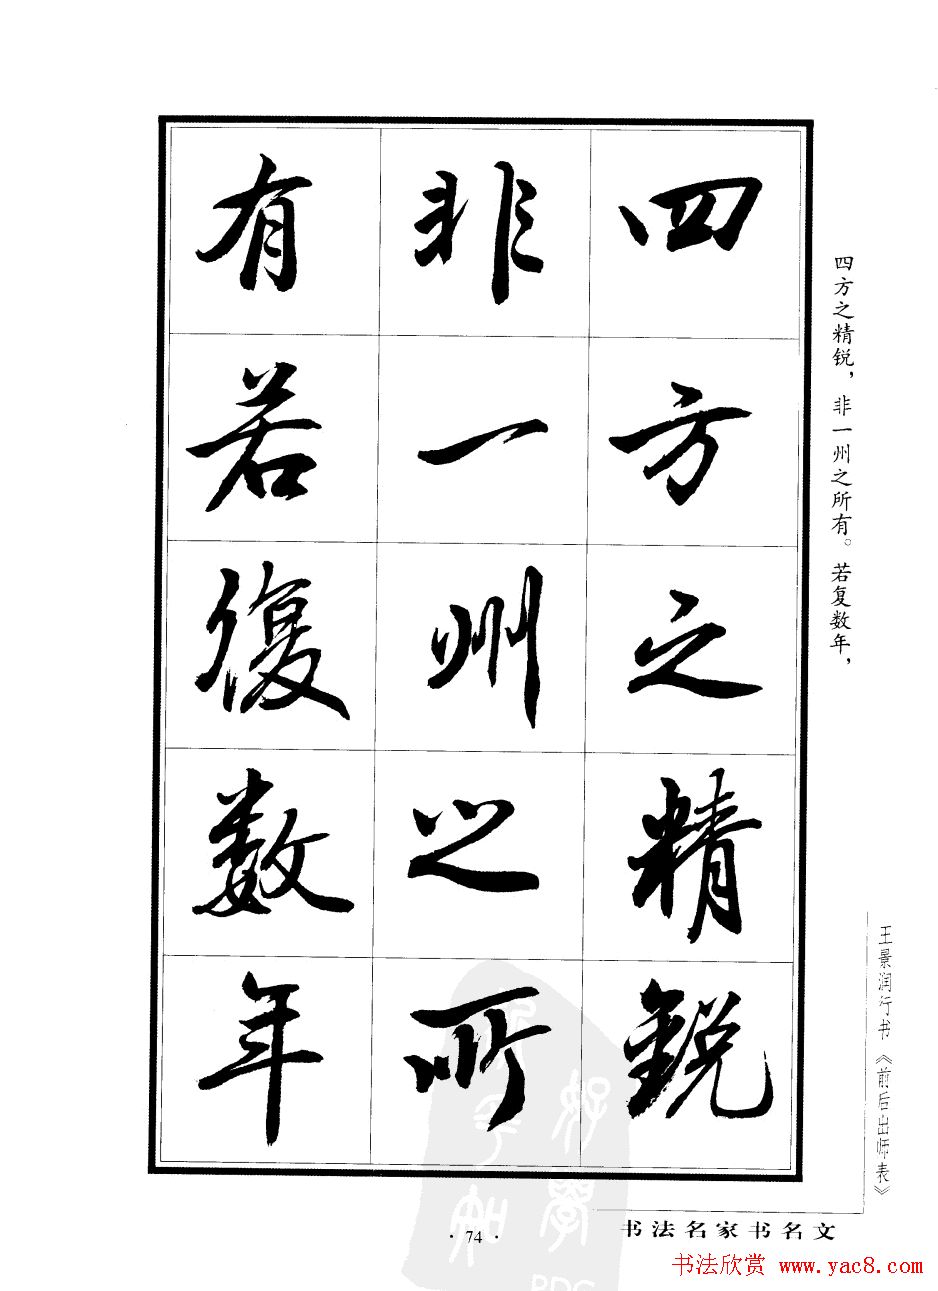 四方之精銳
非一州之所
有若復数年
四方之精锐，非一州之所有。若复数年，
王景润行书《前后出师表》
书法名家书名文
· 74 ·
书法欣赏 www.yac8.com